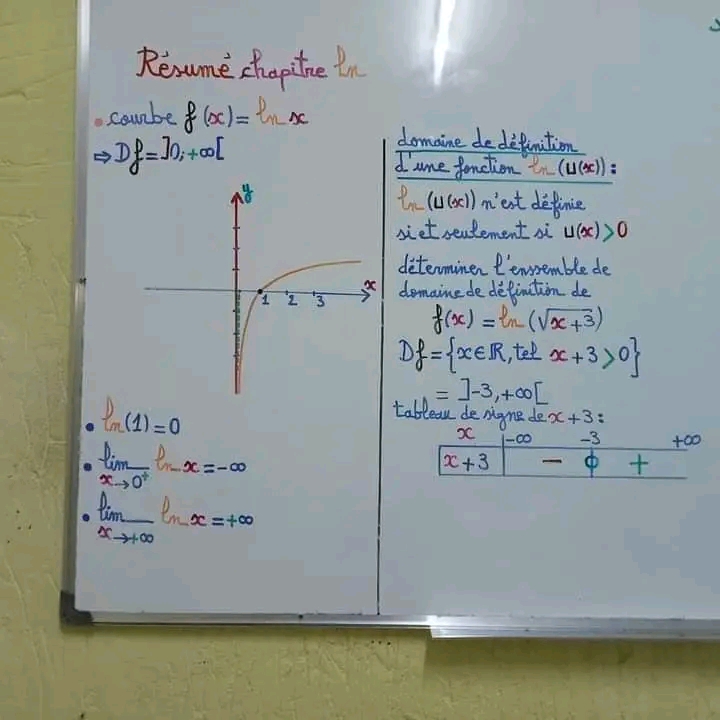 Résumé chapitre ln
• courbe f(x) = ln x
⇒ Df = ]0; +∞[
y
x
1 2 3
• ln(1) = 0
• lim ln x = -∞
x→0⁺
• lim ln x = +∞
x→+∞
domaine de définition
d'une fonction ln (u(x)) :
ln (u(x)) n'est définie
si et seulement si u(x) > 0
déterminer l'enssemble de
domaine de définition de
f(x) = ln (√x+3)
Df = {x ∈ ℝ, tel x+3 > 0}
= ]-3, +∞[
tableau de signe de x+3 :
x -∞ -3 +∞
x+3 - 0 +